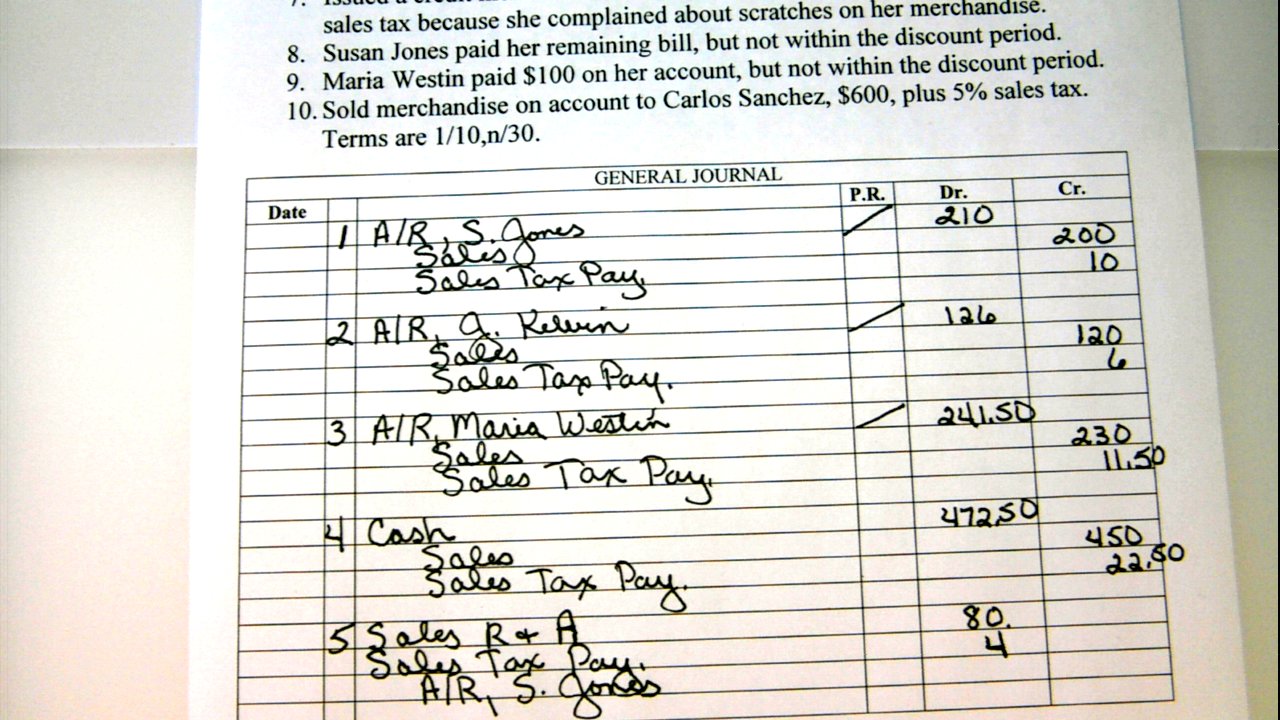 7. Issued a credit
sales tax because she complained about scratches on her merchandise.
8. Susan Jones paid her remaining bill, but not within the discount period.
9. Maria Westin paid $100 on her account, but not within the discount period.
10. Sold merchandise on account to Carlos Sanchez, $600, plus 5% sales tax.
Terms are 1/10,n/30.
GENERAL JOURNAL
Date P.R. Dr. Cr.
1 A/R, S. Jones 210
Sales 200
Sales Tax Pay. 10
2 A/R, A. Kelvin 126
Sales 120
Sales Tax Pay. 6
3 A/R, Maria Westin 241.50
Sales 230
Sales Tax Pay. 11.50
4 Cash 472.50
Sales 450
Sales Tax Pay. 22.50
5 Sales R + A 80.
Sales Tax Pay. 4
A/R, S. Jones